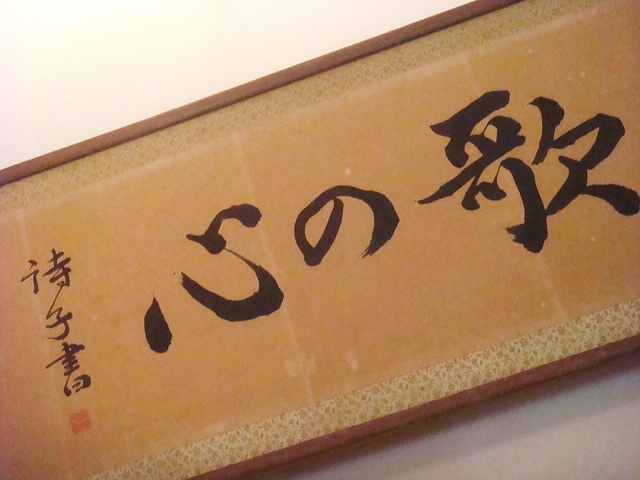 歌の心
詩子書